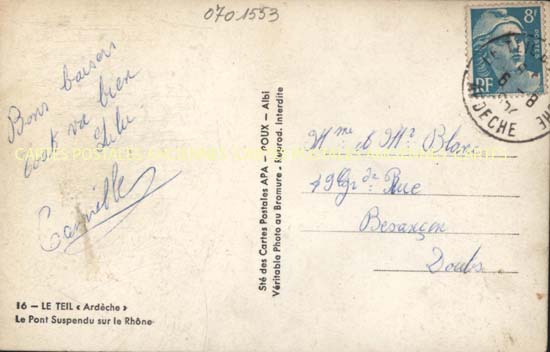 070-1553
Bons baisers
tout va bien
Lulu
Camille
16 — LE TEIL « Ardèche »
Le Pont Suspendu sur le Rhône
Sté des Cartes Postales APA - POUX - Albi
Véritable Photo au Bromure - Reprod. Interdite
8F
RF
ARDECHE
Mme et Mr Blanc
49 Gr de Rue
Besançon
Doubs